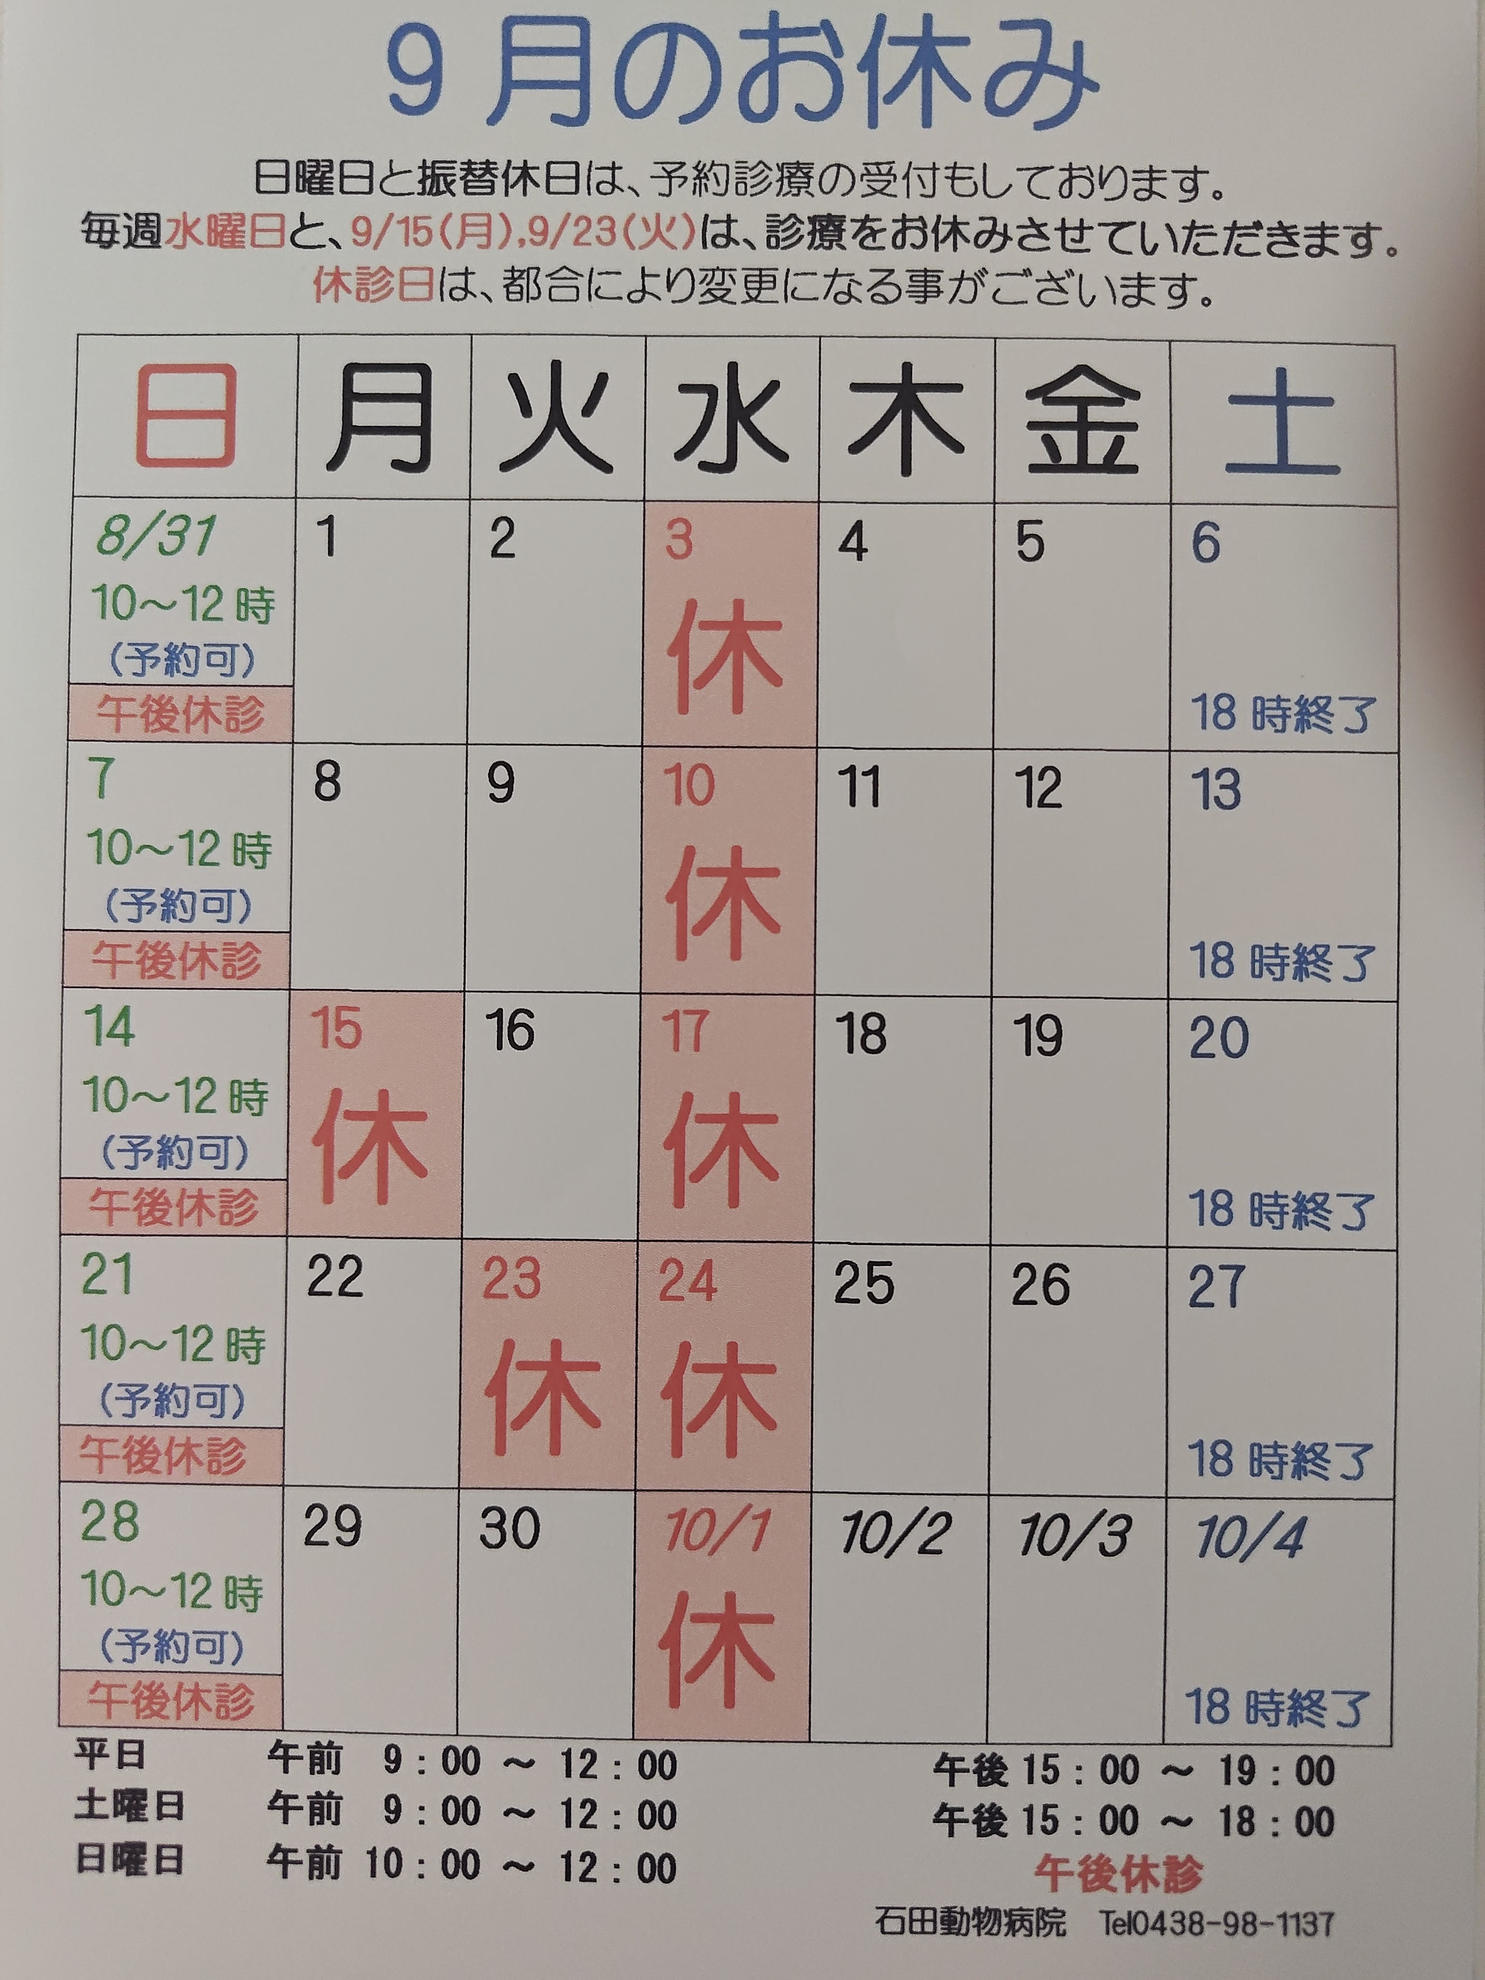 9月のお休み
日曜日と振替休日は、予約診療の受付もしております。
毎週水曜日と、9/15(月),9/23(火)は、診療をお休みさせていただきます。
休診日は、都合により変更になる事がございます。
日 月 火 水 木 金 土
8/31 1 2 3 4 5 6
10〜12時 休
(予約可)
午後休診 18時終了
7 8 9 10 11 12 13
10〜12時 休
(予約可)
午後休診 18時終了
14 15 16 17 18 19 20
10〜12時 休 休
(予約可)
午後休診 18時終了
21 22 23 24 25 26 27
10〜12時 休 休
(予約可)
午後休診 18時終了
28 29 30 10/1 10/2 10/3 10/4
10〜12時 休
(予約可)
午後休診 18時終了
平日 午前 9:00 〜 12:00 午後 15:00 〜 19:00
土曜日 午前 9:00 〜 12:00 午後 15:00 〜 18:00
日曜日 午前 10:00 〜 12:00 午後休診
石田動物病院 Tel0438-98-1137